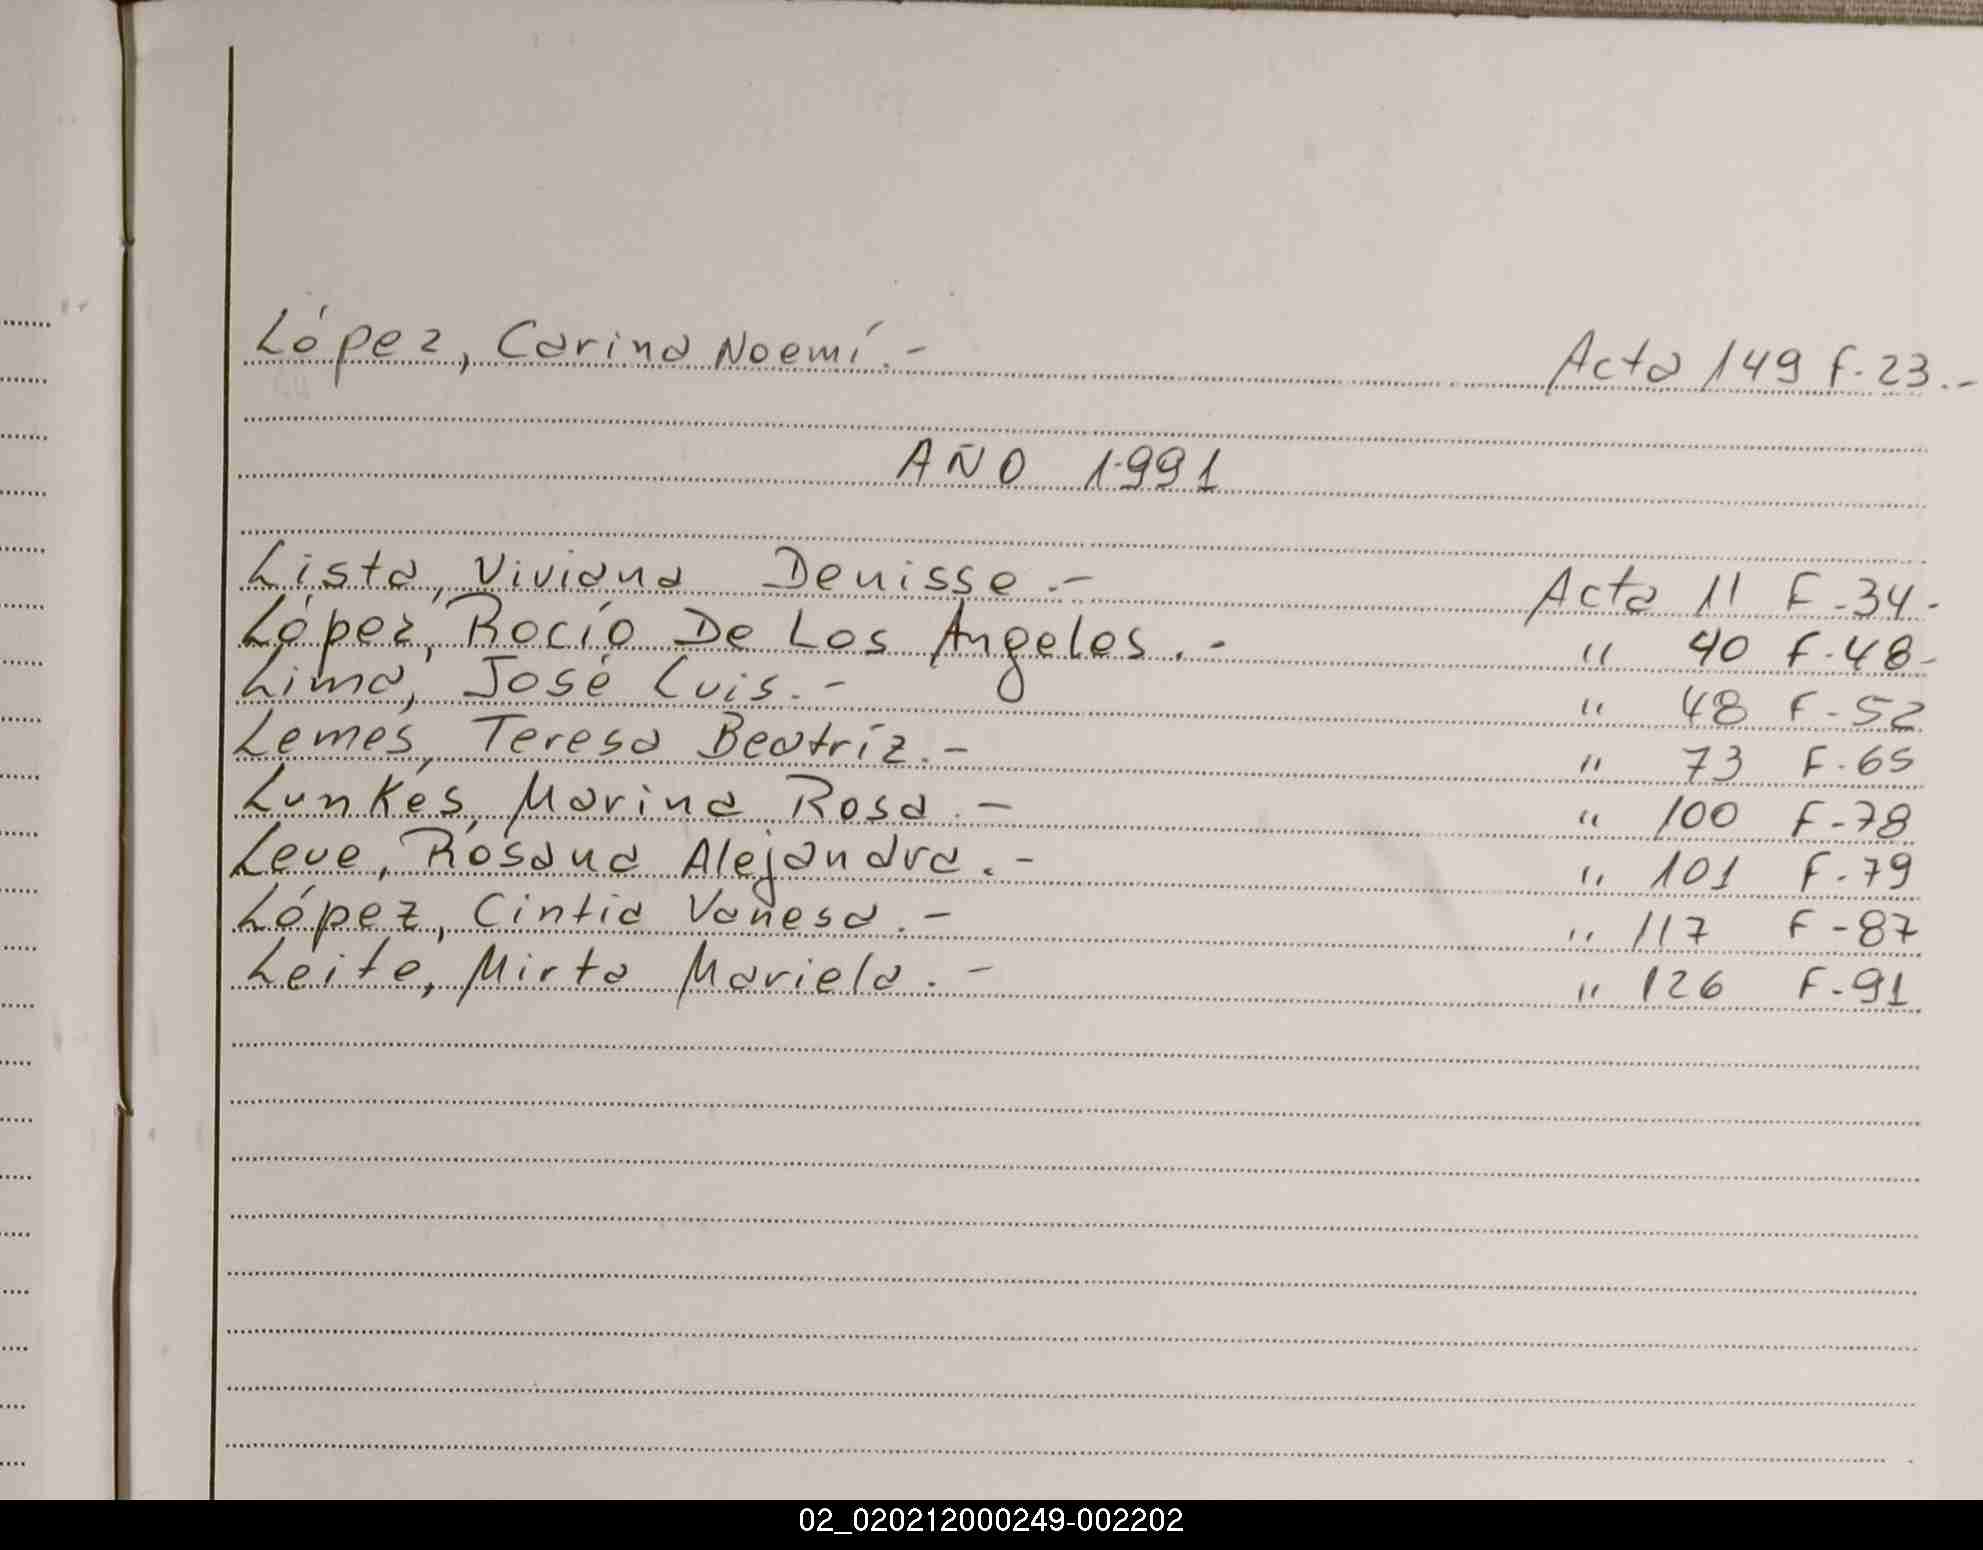 López, Carina Noemí.- Acta 149 F-23.-
AÑO 1991
Lista, Viviana Denisse.- Acta 11 F-34-
López, Rocío De Los Angeles.- " 40 F-48-
Lima, José Luis.- " 48 F-52
Lemes, Teresa Beatríz.- " 73 F-65
Lunkes, Marina Rosa.- " 100 F-78
Leve, Rosana Alejandra.- " 101 F-79
López, Cintia Vanesa.- " 117 F-87
Leite, Mirta Mariela.- " 126 F-91
02_020212000249-002202